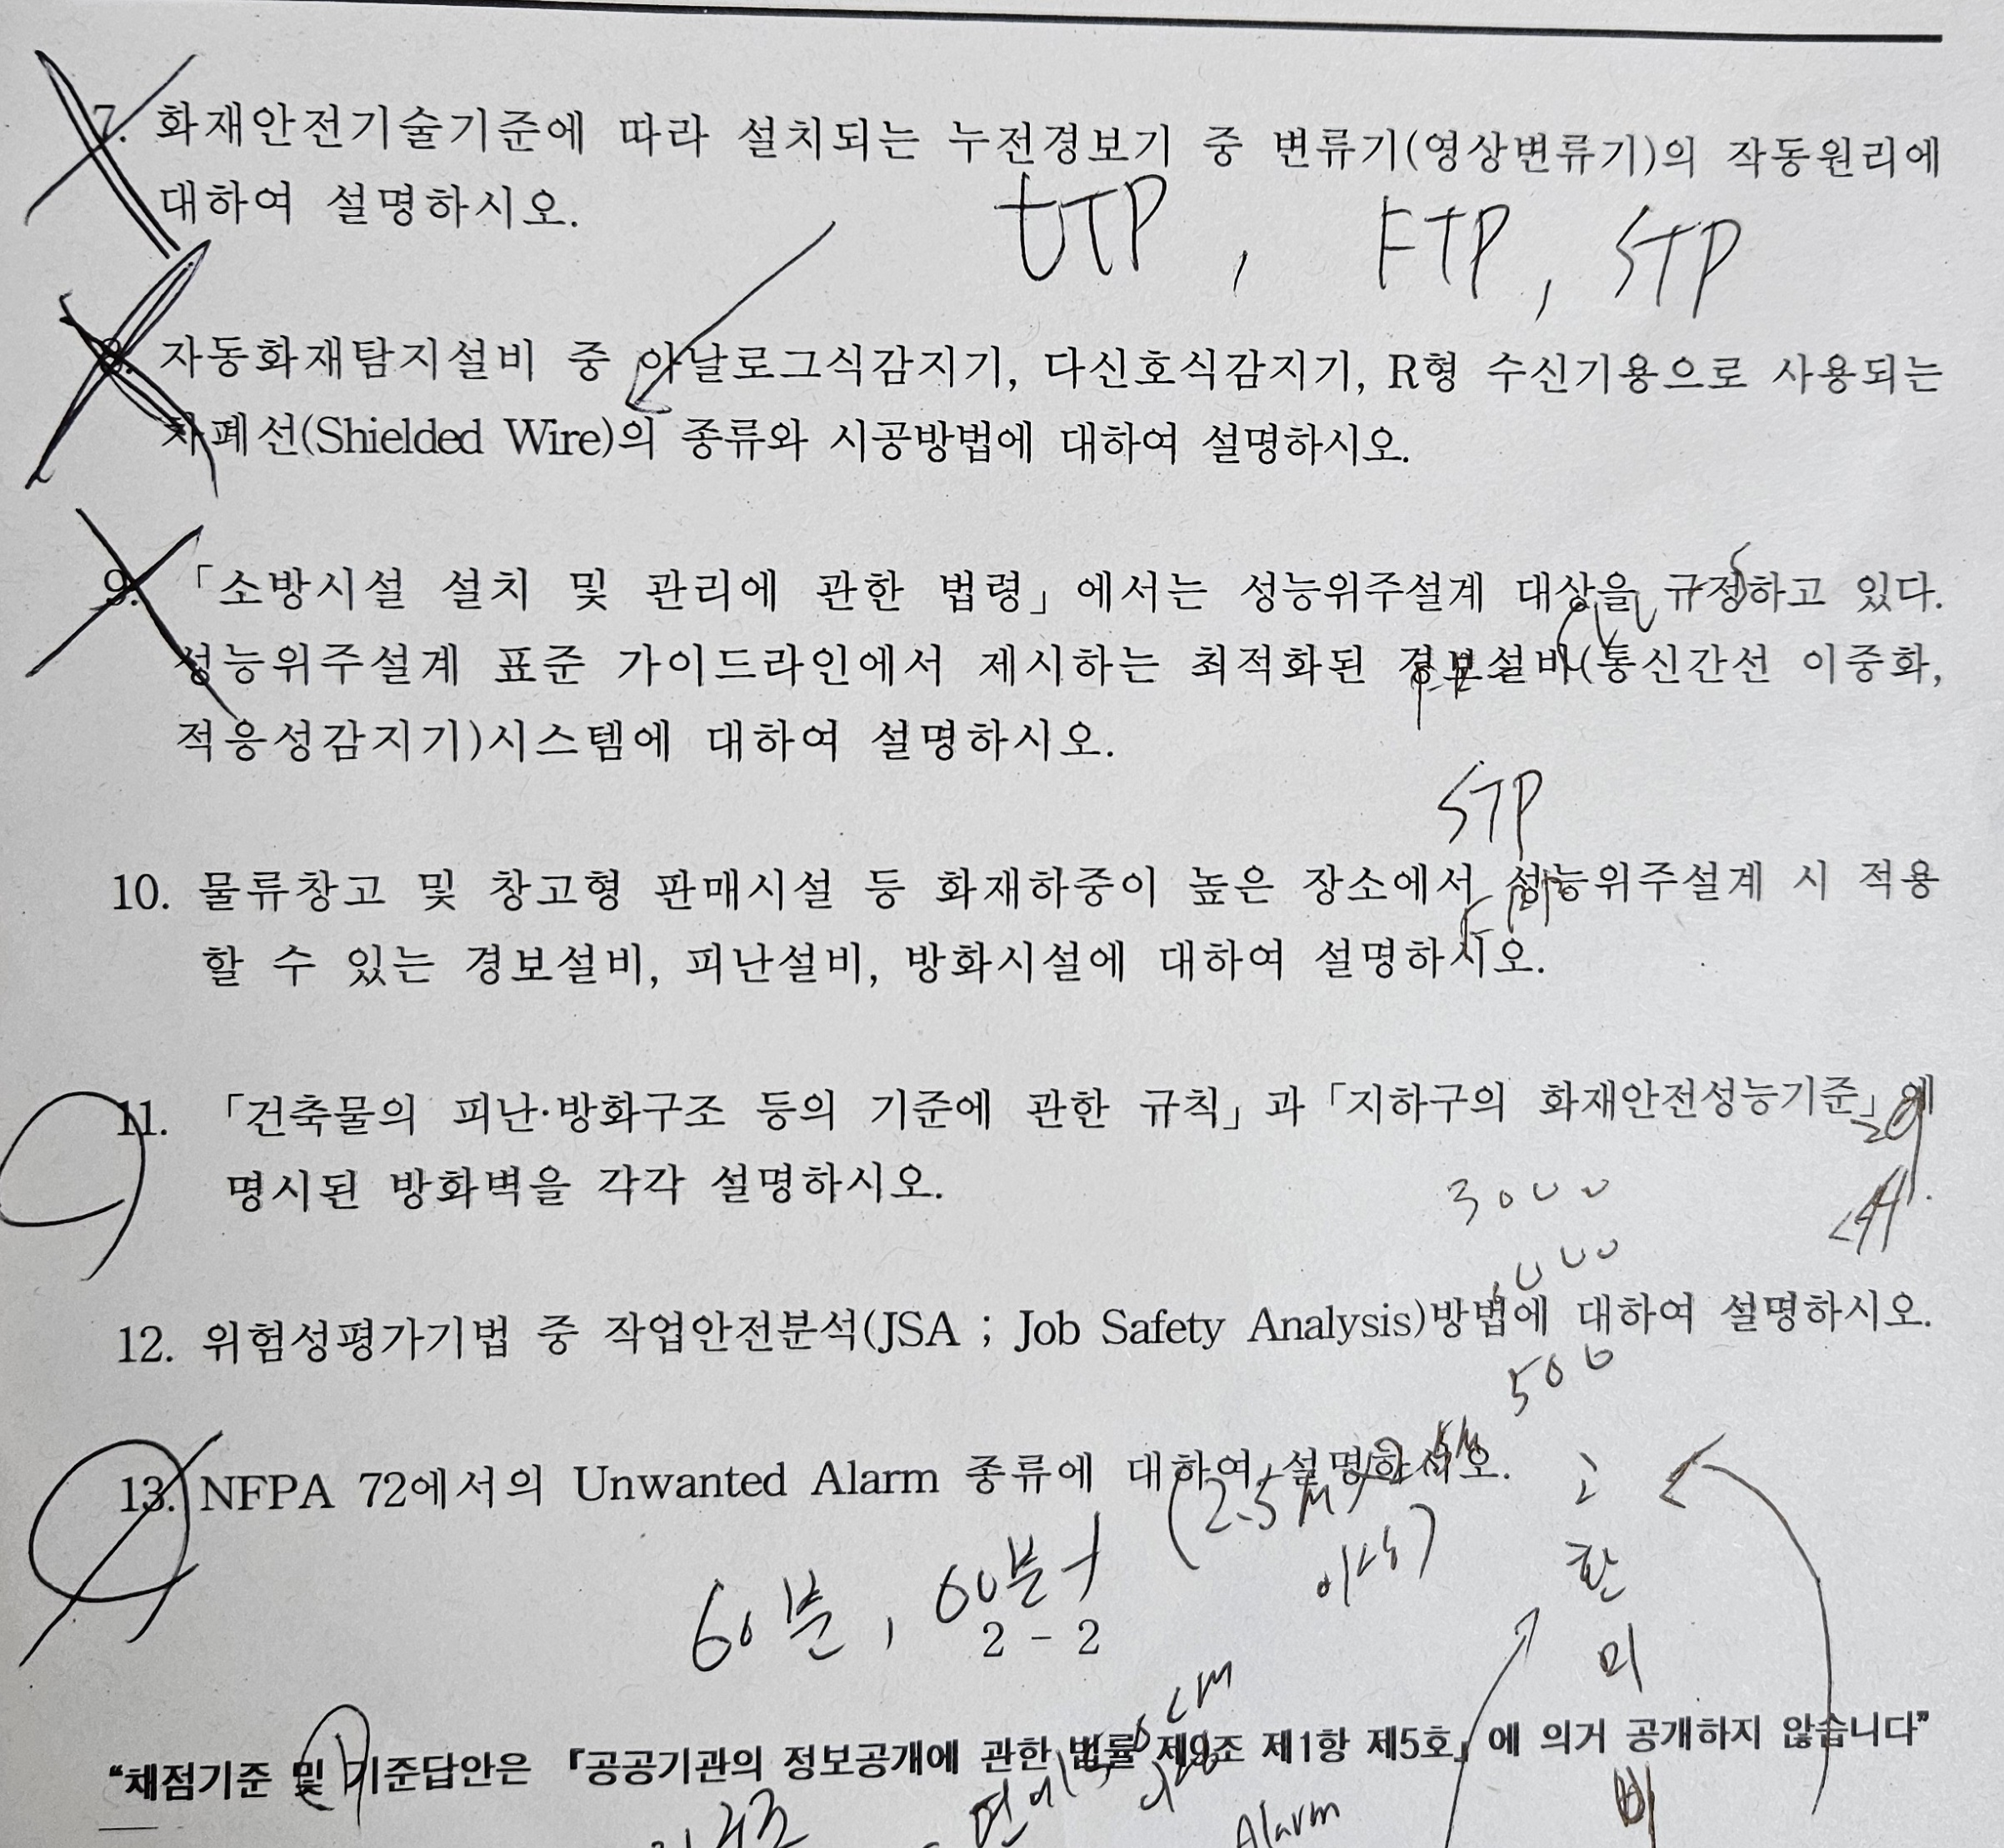 7. 화재안전기술기준에 따라 설치되는 누전경보기 중 변류기(영상변류기)의 작동원리에
대하여 설명하시오.
UTP, FTP, STP
8. 자동화재탐지설비 중 아날로그식감지기, 다신호식감지기, R형 수신기용으로 사용되는
차폐선(Shielded Wire)의 종류와 시공방법에 대하여 설명하시오.
9. 「소방시설 설치 및 관리에 관한 법령」에서는 성능위주설계 대상을 규정하고 있다.
성능위주설계 표준 가이드라인에서 제시하는 최적화된 경보설비(통신간선 이중화,
적응성감지기)시스템에 대하여 설명하시오.
STP
10. 물류창고 및 창고형 판매시설 등 화재하중이 높은 장소에서 성능위주설계 시 적용
할 수 있는 경보설비, 피난설비, 방화시설에 대하여 설명하시오.
11. 「건축물의 피난·방화구조 등의 기준에 관한 규칙」과 「지하구의 화재안전성능기준」에
명시된 방화벽을 각각 설명하시오.
3000
12. 위험성평가기법 중 작업안전분석(JSA ; Job Safety Analysis)방법에 대하여 설명하시오.
500
13. NFPA 72에서의 Unwanted Alarm 종류에 대하여 설명하시오.
60분, 60분+
2 - 2
“채점기준 및 기준답안은 「공공기관의 정보공개에 관한 법률 제9조 제1항 제5호」에 의거 공개하지 않습니다”
Alarm